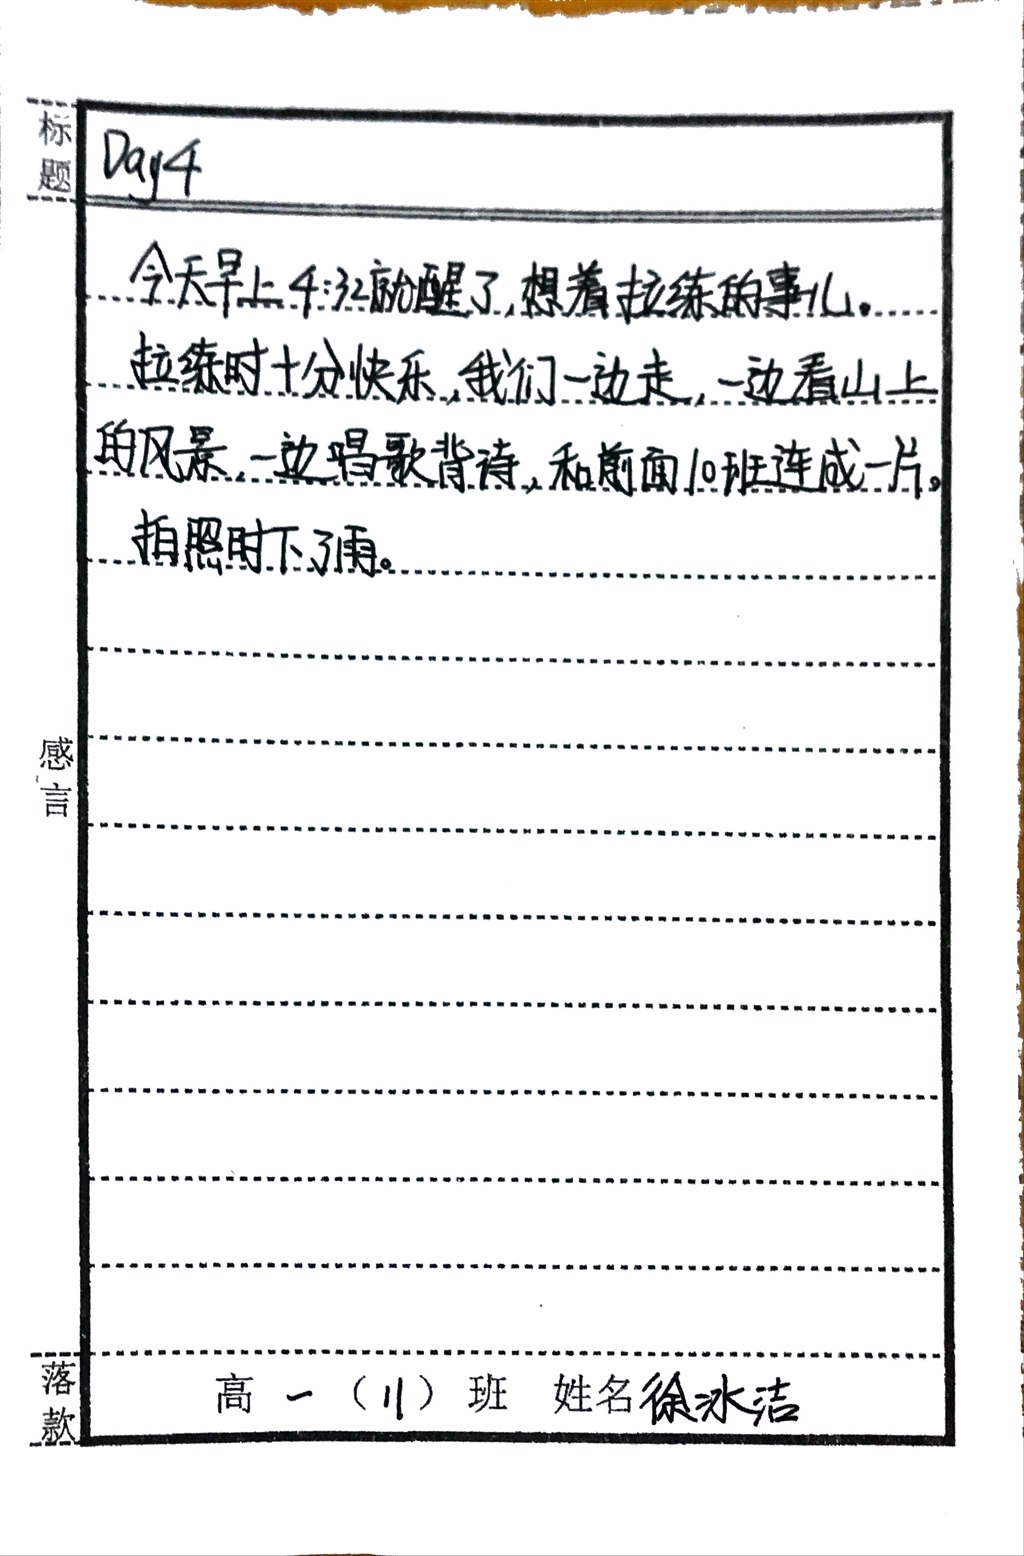 标题
Day4
今天早上4:32就醒了,想着拉练的事儿。
拉练时十分快乐,我们一边走,一边看山上
的风景,一边唱歌背诗,和前面10班连成一片。
拍照时下了雨。
感言
落款
高一(11)班 姓名徐冰洁